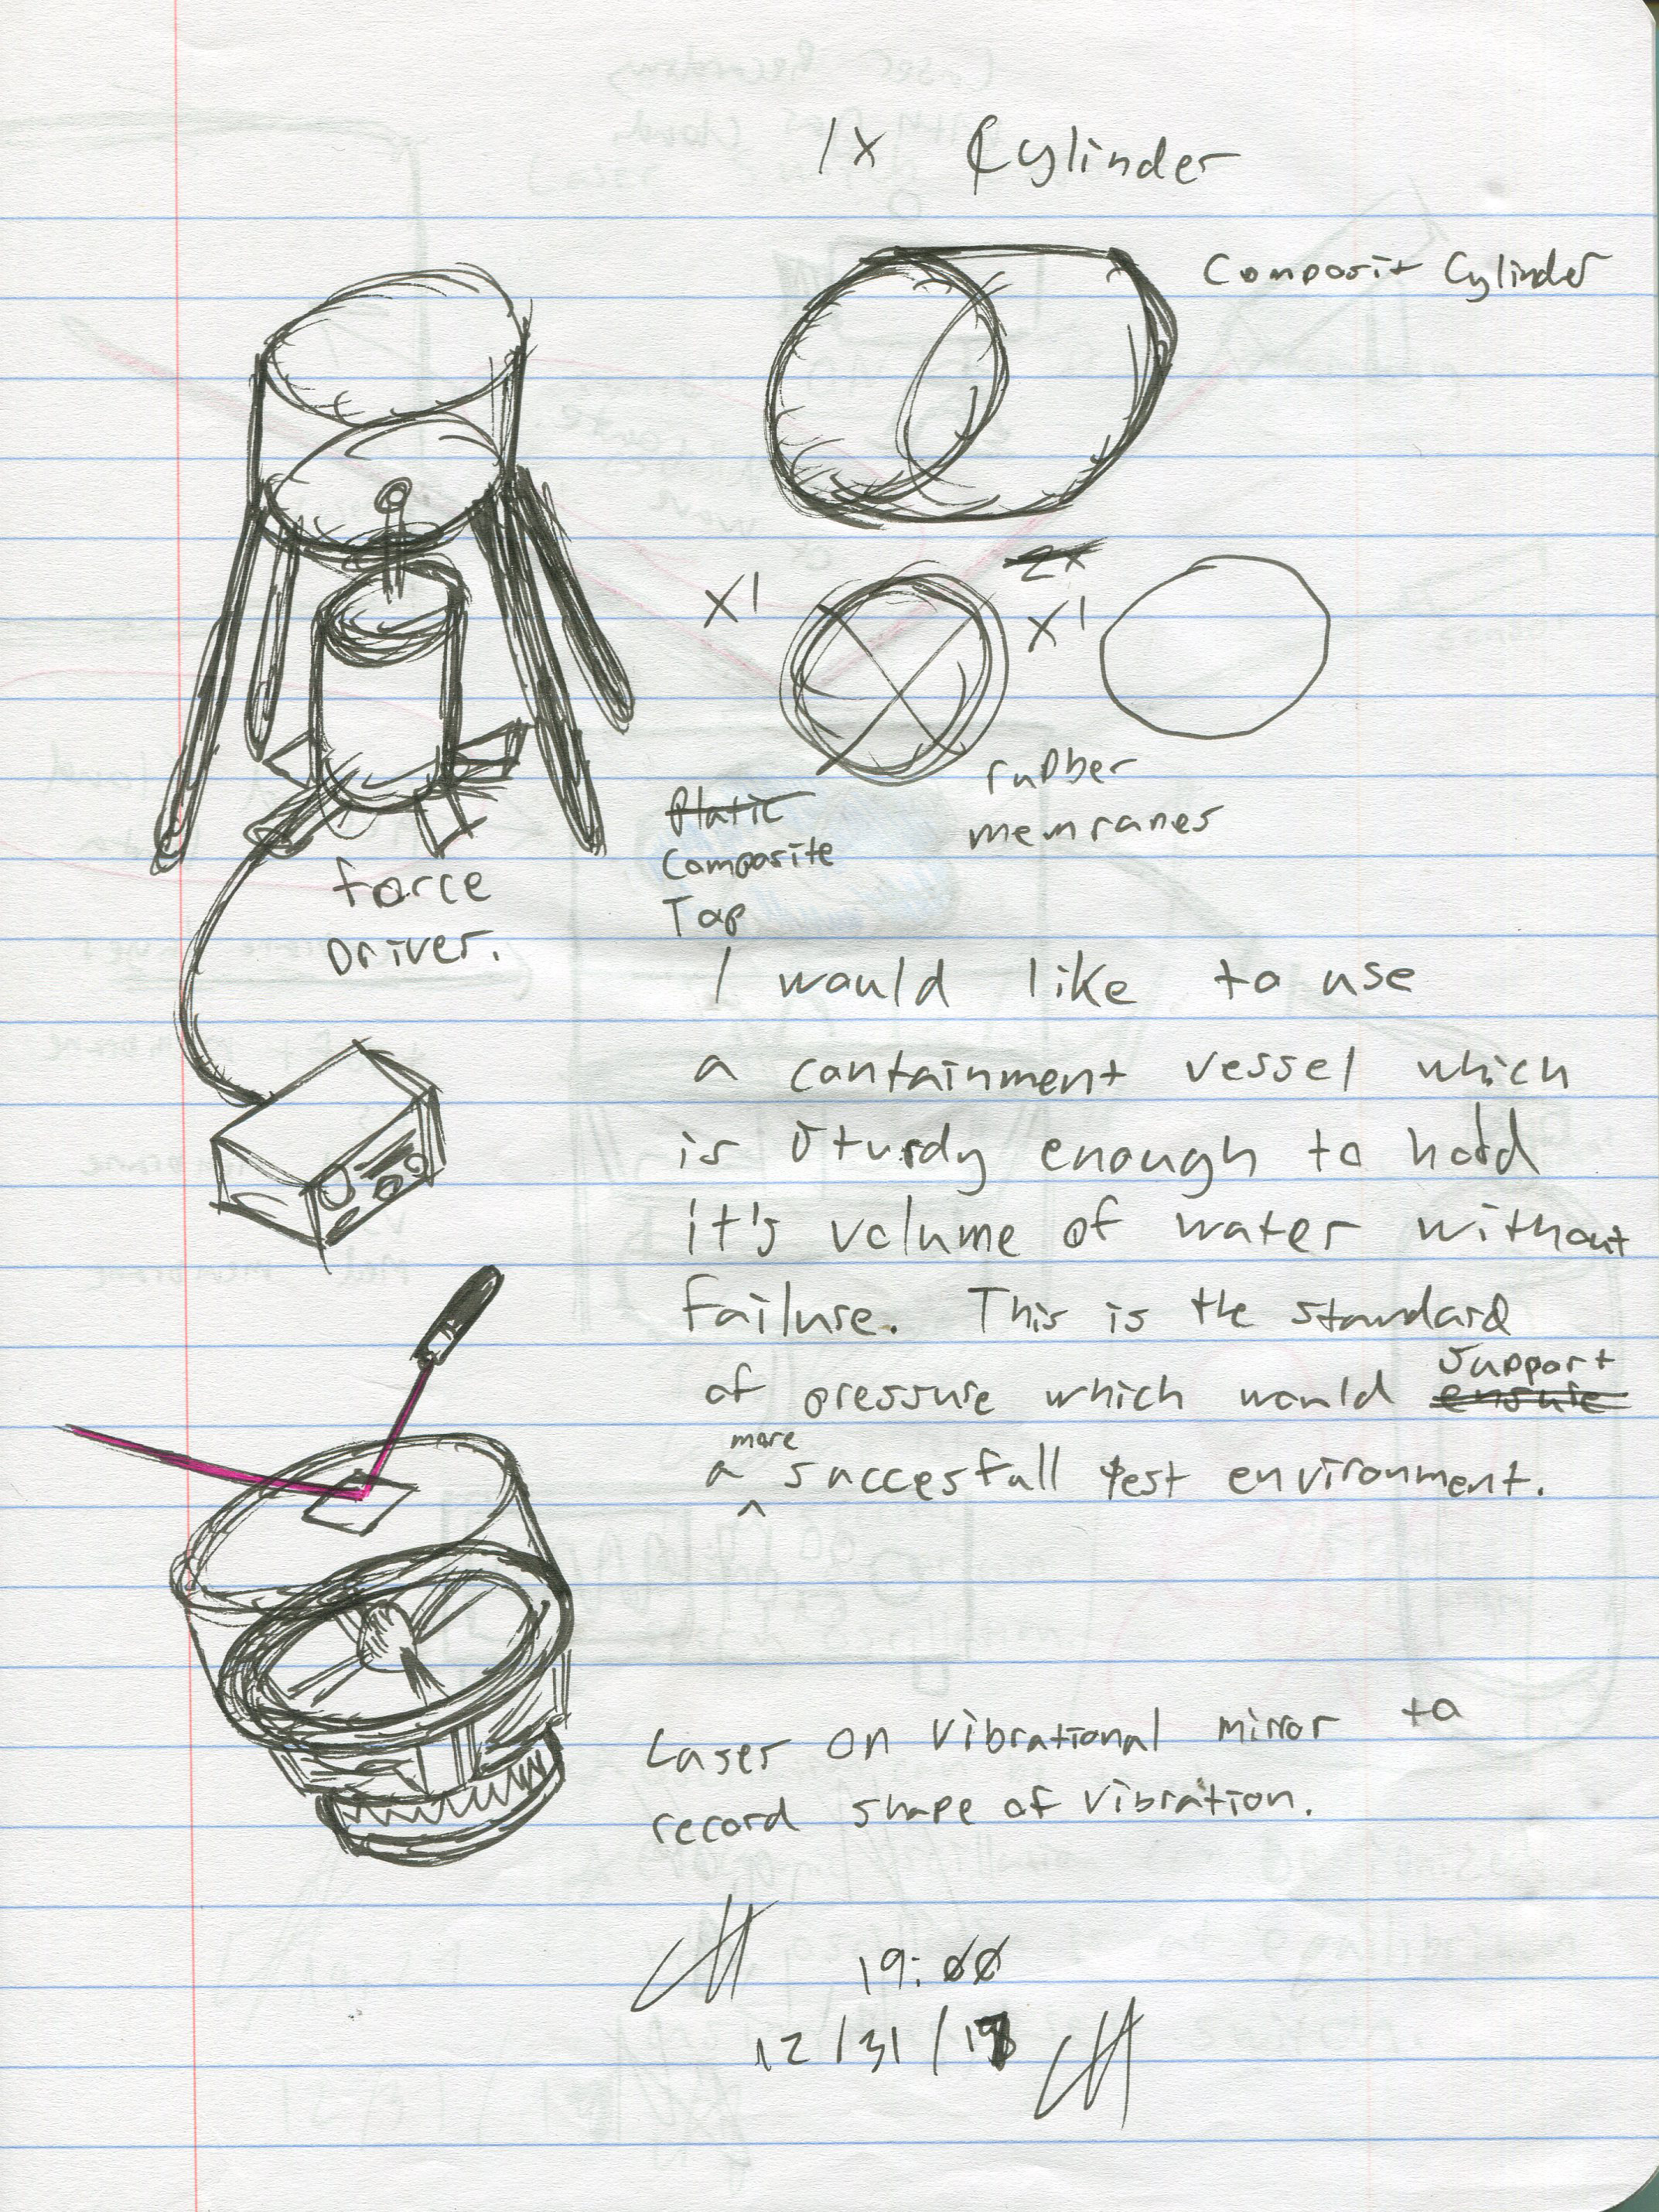 1x Cylinder
Composit Cylinder
x1
2x
x1
rubber
memranes
Platic
Composite
Top
force
Driver.
I would like to use
a containment vessel which
is sturdy enough to hold
it's volume of water without
failure. This is the standard
of pressure which would ensure support
a more succesfull test environment.
Laser on vibrational mirror to
record shape of vibration.
19:00
12/31/